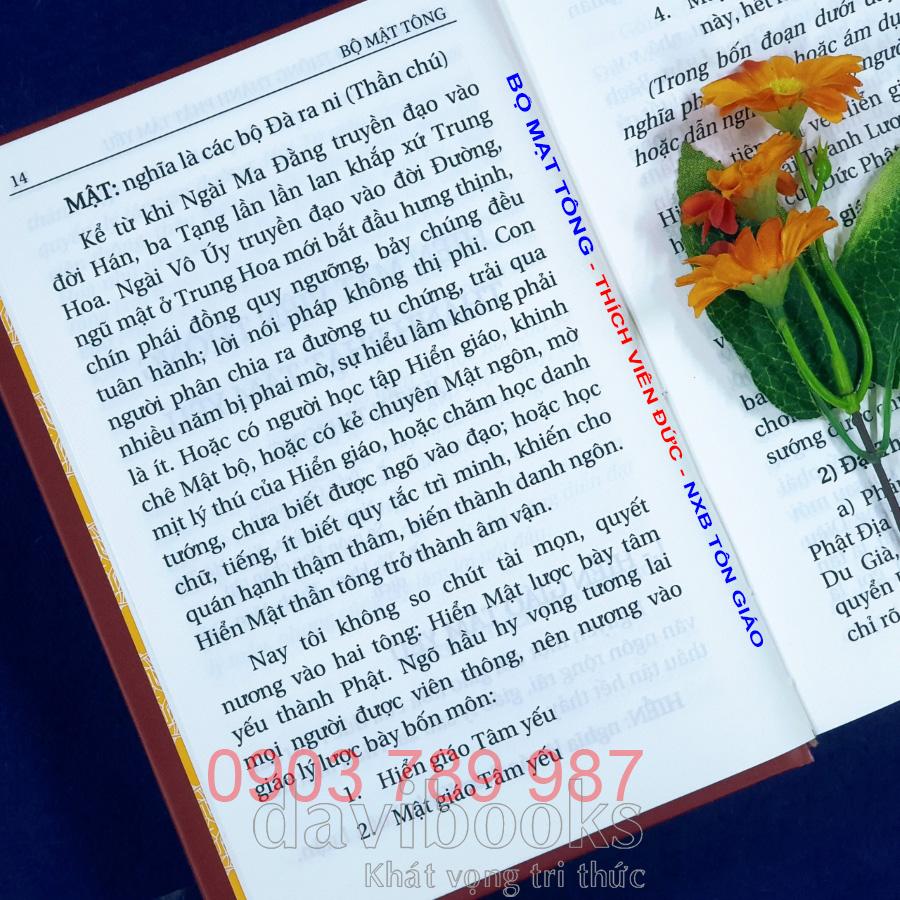 14
BỘ MẬT TÔNG
MẬT: nghĩa là các bộ Đà ra ni (Thần chú)
Kể từ khi Ngài Ma Đằng truyền đạo vào
đời Hán, ba Tạng lần lần lan khắp xứ Trung
Hoa. Ngài Vô Úy truyền đạo vào đời Đường,
ngũ mật ở Trung Hoa mới bắt đầu hưng thịnh,
chín phái đồng quy ngưỡng, bảy chúng đều
tuân hành; lời nói pháp không thị phi. Con
người phân chia ra đường tu chứng, trải qua
nhiều năm bị phai mờ, sự hiểu lầm không phải
là ít. Hoặc có người học tập Hiển giáo, khinh
chê Mật bộ, hoặc có kẻ chuyên Mật ngôn, mờ
mịt lý thú của Hiển giáo, hoặc chăm học danh
tướng, chưa biết được ngõ vào đạo; hoặc học
chữ, tiếng, ít biết quy tắc trì minh, khiến cho
quán hạnh thậm thâm, biến thành danh ngôn.
Hiển Mật thần tông trở thành âm vận.
Nay tôi không so chút tài mọn, quyết
nương vào hai tông: Hiển Mật lược bày tâm
yếu thành Phật. Ngõ hầu hy vọng tương lai
mọi người được viên thông, nên nương vào
giáo lý lược bày bốn môn:
1. Hiển giáo Tâm yếu
2. Mật giáo Tâm yếu
BỘ MẬT TÔNG - THÍCH VIÊN ĐỨC - NXB TÔN GIÁO
4.
này, hết
(Trong bốn đoạn dưới
nghĩa
hoặc ám dụ
hoặc dẫn
về hiển
Thanh Lương
Đức Phật
sướng
2)
a)
Phật Địa
Du Già,
quyển
chỉ rõ
0903 789 987
davibooks
Khát vọng tri thức